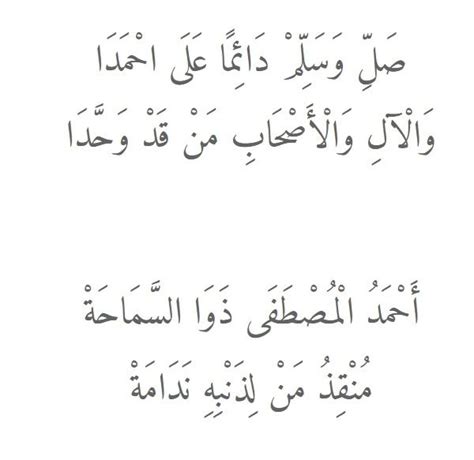 صَلِّ وَسَلِّمْ دَائِمًا عَلَى احْمَدَا
وَالْآلِ وَالْأَصْحَابِ مَنْ قَدْ وَحَّدَا
أَحْمَدُ الْمُصْطَفَى ذَوَا السَّمَاحَةْ
مُنْقِذُ مَنْ لِذَنْبِهِ نَدَامَةْ